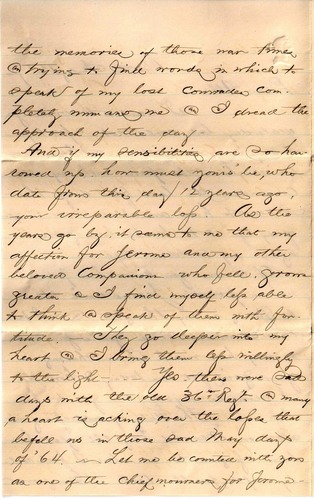 the memories of those war times
& trying to find words in which to
speak of my lost Comrades com-
pletely unmans me & I dread the
approach of the day
And if my sensibilities are so har-
rowed up how must yours be, who
date from this day 12 years ago,
your irreparable loss. As the
years go by it seems to me that my
affection for Jerome and my other
beloved Companions who fell, grows
greater & I find myself less able
to think & speak of them with for-
titude. They go deeper into my
heart & I bring them less willingly
to the light — Yes there were sad
days with the old 36th Regt & many
a heart is aching over the losses that
befell us in those sad May days
of '64. — Let me be counted with yours
as one of the chief mourners for Jerome-